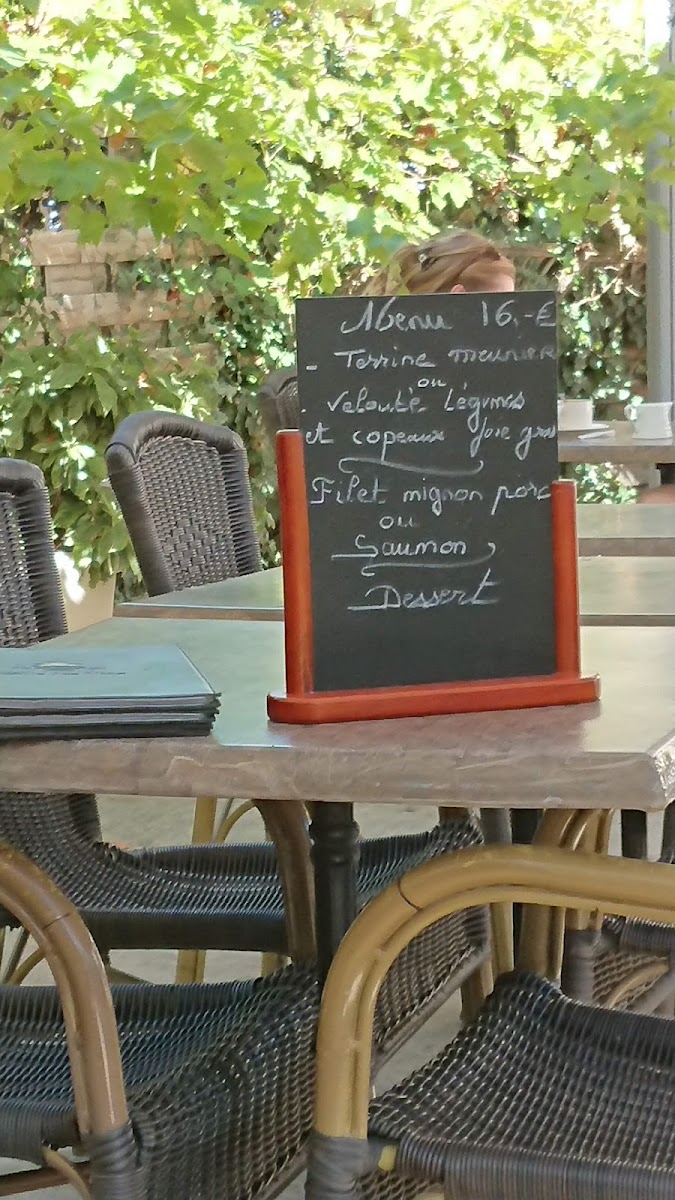 Menu 16,-€
- Terrine meunier
ou
- Velouté Légumes
et copeaux foie gras
Filet mignon porc
ou
Saumon
Dessert